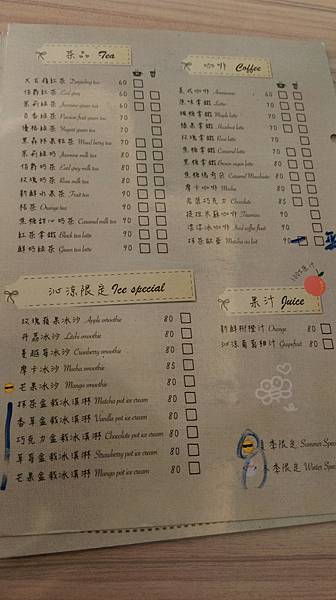 茶品 Tea
大吉嶺紅茶 Darjeeling tea 60
伯爵紅茶 Earl grey 60
茉莉綠茶 Jasmine green tea 60
百香綠茶 Passion fruit green tea 70
優格綠茶 Yogurt green tea 70
黑森林果粒茶 Mixed berry tea 70
茉莉綠奶 Jasmine milk tea 80
伯爵奶茶 Earl grey milk tea 80
玫瑰奶茶 Rose milk tea 80
新鮮水果茶 Fruit tea 90
桔茶 Orange tea 90
焦糖甜心奶茶 Caramel milk tea 90
紅茶拿鐵 Black tea latte 90
鮮奶綠茶 Green tea latte 90
咖啡 Coffee
美式咖啡 Americano 60
原味拿鐵 Latte 70
楓糖拿鐵 Maple latte 70
榛果拿鐵 Hazelnut latte 70
玫瑰拿鐵 Rose latte 70
焦糖拿鐵 Caramel latte 70
黑糖拿鐵 Brown sugar latte 80
焦糖瑪奇朵 Caramel Macchiato 80
摩卡咖啡 Mocha 80
巧克力 Chocolate 85
提拉米蘇咖啡 Tiramisu 90
漂浮冰咖啡 Iced coffee float 90
抹茶歐蕾 Matcha au lait 90
沁涼限定 Ice special
玫瑰蘋果冰沙 Apple smoothie 80
荔枝冰沙 Litchi smoothie 80
蔓越莓冰沙 Cranberry smoothie 80
摩卡冰沙 Mocha smoothie 85
芒果冰沙 Mango smoothie 80
抹茶盆栽冰淇淋 Matcha pot ice cream 80
香草盆栽冰淇淋 Vanilla pot ice cream 80
巧克力盆栽冰淇淋 Chocolate pot ice cream 80
草莓盆栽冰淇淋 Strawberry pot ice cream 80
芒果盆栽冰淇淋 Mango pot ice cream 80
100%原汁
果汁 Juice
新鮮柳橙汁 Orange 80
沁涼葡萄柚汁 Grapefruit 80
夏季限定 Summer Spec
冬季限定 Winter Spec